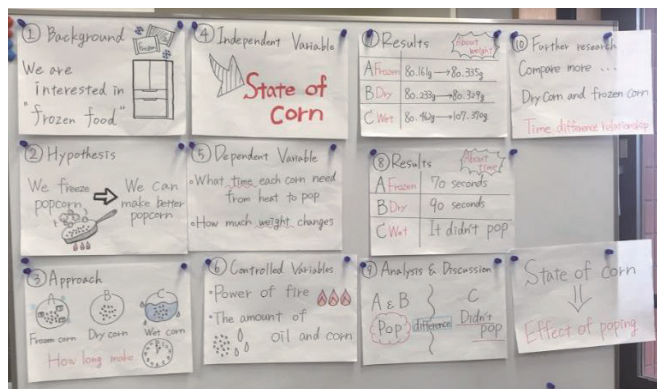 ① Background
Frozen
We are
interested in
"frozen food"
② Hypothesis
We freeze
popcorn
We can
make better
popcorn
③ Approach
A
B
C
Frozen corn
Dry corn
Wet corn
How long make
④ Independent Variable
State of
Corn
⑤ Dependent Variable
•What time each corn need
from heat to pop
•How much weight changes
⑥ Controlled Variables
•Power of fire
•The amount of
oil and corn
⑦ Results
About
weight!
A Frozen
B Dry 80.233g→80.329g
C Wet
⑧ Results
About
time!
A Frozen 70 seconds
B Dry 90 seconds
C Wet It didn't pop
⑨ Analysis & Discussion
A & B
Pop
difference
C
Didn't
pop
⑩ Further research
Compare more ...
Dry corn and frozen corn
Time difference relationship
State of corn
Effect of poping